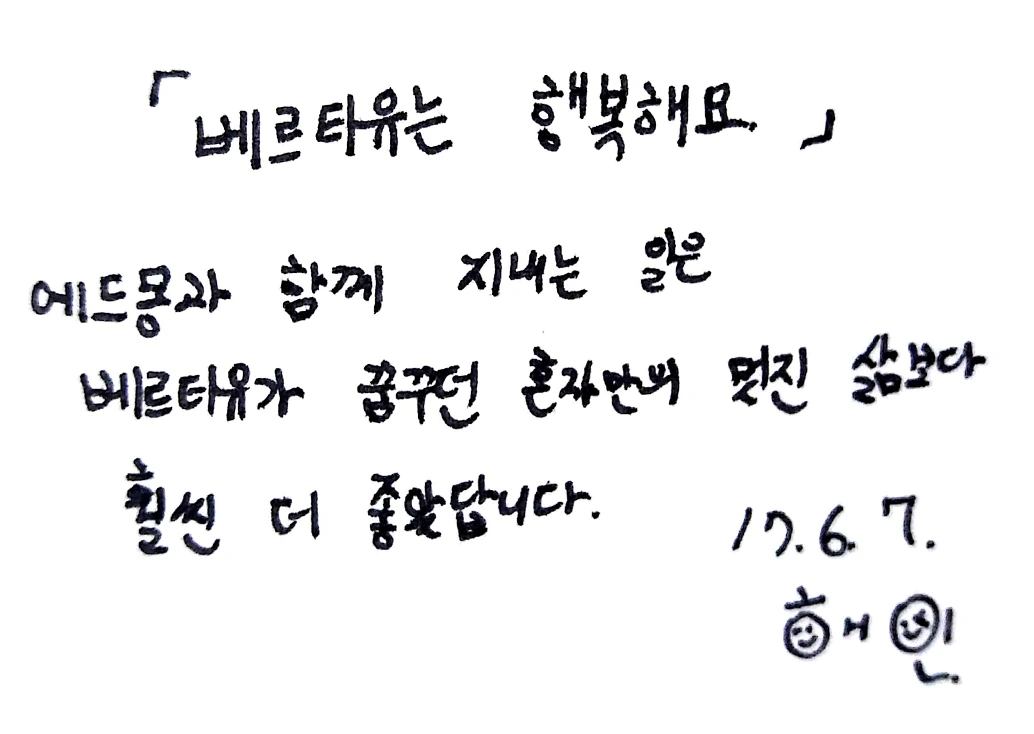 「베르타유는 행복해요.」
에드몽과 함께 지내는 삶은
베르타유가 꿈꾸던 혼자만의 멋진 삶보다
훨씬 더 좋았답니다.
17.6.7.
해인.